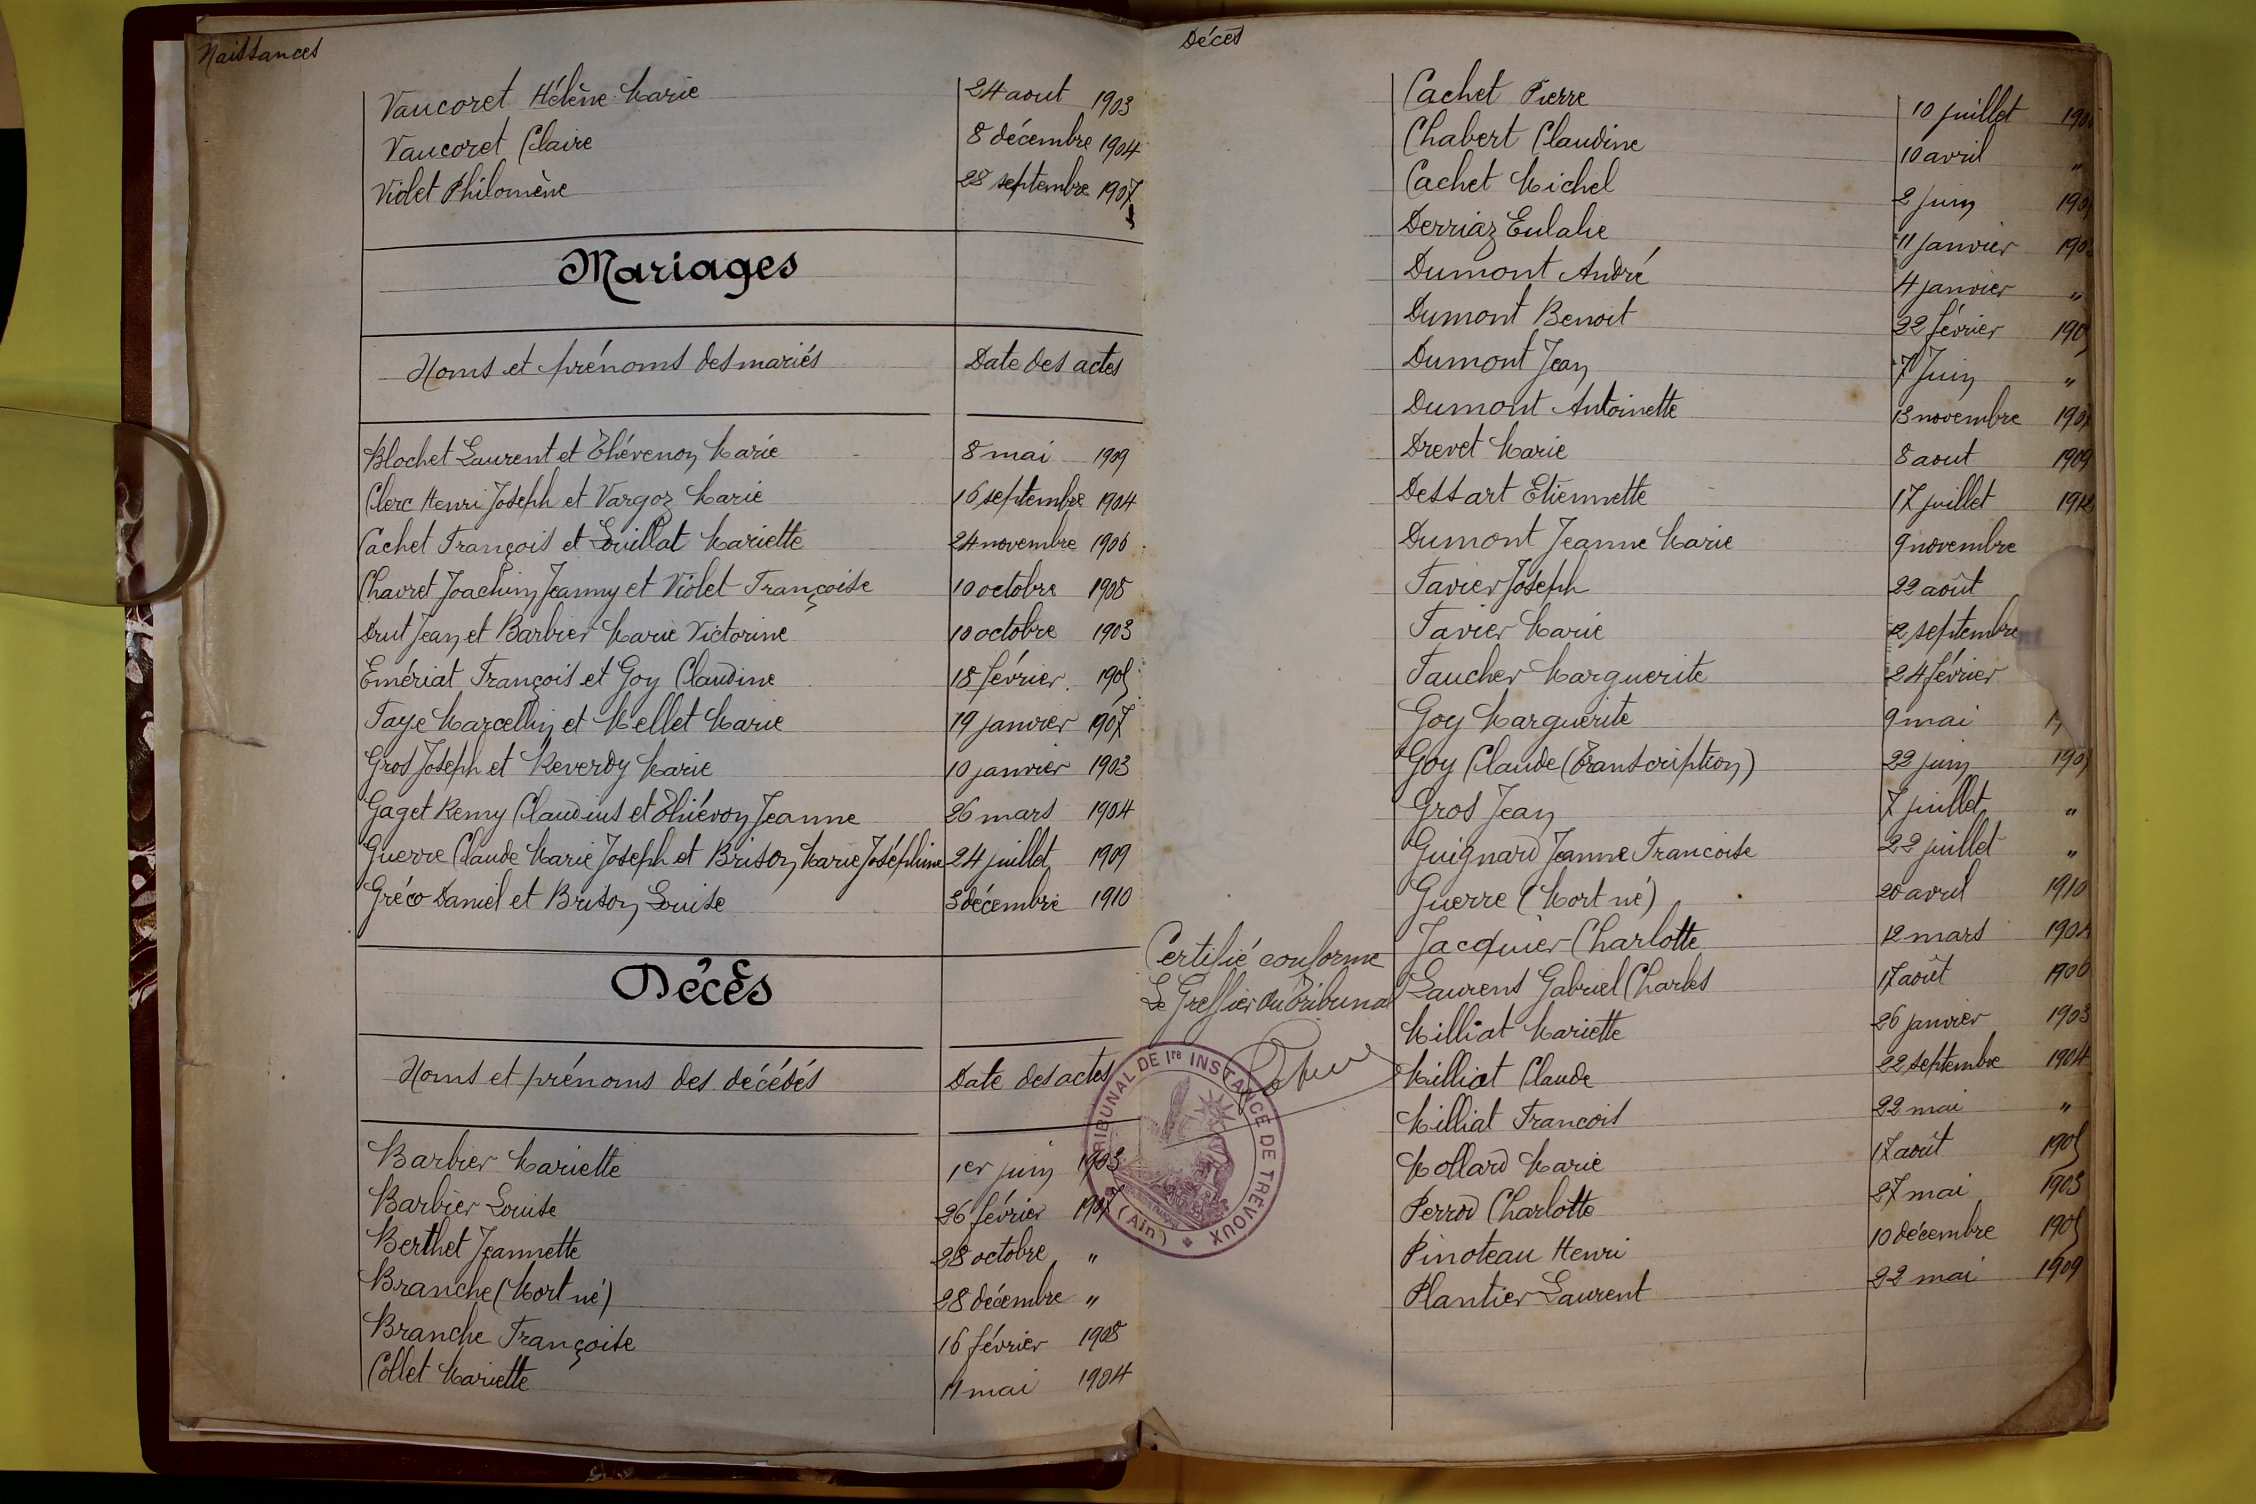 Naissances
Vaucoret Hélène Marie 24 aout 1903
Vaucoret Claire 8 décembre 1904
Violet Philomène 28 septembre 1907
Mariages
Noms et prénoms des mariés Date des actes
Blochet Laurent et Thévenon Marie 8 mai 1909
Clerc Henri Joseph et Vargoz Marie 16 septembre 1904
Cachet François et Louillat Mariette 24 novembre 1906
Chavret Joachim Jeanny et Violet Françoise 10 octobre 1908
Drut Jean et Barbier Marie Victorine 10 octobre 1903
Emériat François et Goy Claudine 18 février 1905
Faye Marcellin et Mellet Marie 19 janvier 1907
Gros Joseph et Reverdy Marie 10 janvier 1903
Gaget Remy Claudius et Thiévon Jeanne 26 mars 1904
Guerre Claude Marie Joseph et Brison Marie Joséphine 24 juillet 1909
Gréco Daniel et Brison Louise 3 décembre 1910
Décès
Noms et prénoms des décédés Date des actes
Barbier Mariette 1er juin 1903
Barbier Louise 26 février 1907
Berthet Jeannette 28 octobre "
Branche (Mort né) 28 décembre "
Branche Françoise 16 février 1908
Collet Mariette 11 mai 1904
Décès
Cachet Pierre 10 juillet
Chabert Claudine 10 avril "
Cachet Michel 2 juin
Derriaz Eulalie 11 janvier
Dumont André 4 janvier "
Dumont Benoit 22 février 1905
Dumont Jean 7 Juin "
Dumont Antoinette 13 novembre 1907
Drevet Marie 8 aout 1909
Dessart Etiennette 17 juillet
Dumont Jeanne Marie 9 novembre
Favier Joseph 22 août
Favier Marie 12 septembre
Faucher Marguerite 24 février
Goy Marguerite 9 mai
Goy Claude (Transcription) 22 juin
Gros Jean 7 juillet "
Guignard Jeanne Francoise 22 juillet "
Guerre (Mort né) 20 avril 1910
Jacquier Charlotte 12 mars 1904
Laurens Gabriel Charles 17 août 1906
Milliat Mariette 26 janvier 1903
Milliat Claude 22 septembre 1904
Milliat Francois 22 mai "
Mollard Marie 17 août 1905
Perrod Charlotte 27 mai 1903
Pinoteau Henri 10 décembre 1905
Plantier Laurent 22 mai 1909
Certifié conforme
Le Greffier du Tribunal
TRIBUNAL DE 1re INSTANCE DE TRÉVOUX
(Ain)